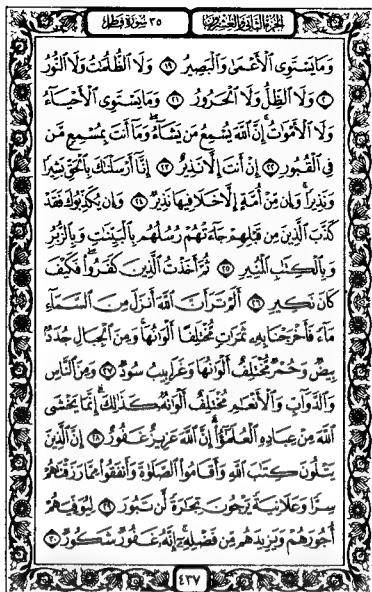 الجزء الثاني والعشرون ٣٥ سورة فاطر
وَمَا يَسْتَوِى الْأَعْمَىٰ وَالْبَصِيرُ ۝١٩ وَلَا الظُّلُمَٰتُ وَلَا النُّورُ
۝٢٠ وَلَا الظِّلُّ وَلَا الْحَرُورُ ۝٢١ وَمَا يَسْتَوِى الْأَحْيَآءُ
وَلَا الْأَمْوَٰتُ إِنَّ اللَّهَ يُسْمِعُ مَن يَشَآءُ وَمَآ أَنتَ بِمُسْمِعٍ مَّن
فِى الْقُبُورِ ۝٢٢ إِنْ أَنتَ إِلَّا نَذِيرٌ ۝٢٣ إِنَّآ أَرْسَلْنَٰكَ بِالْحَقِّ بَشِيرًا
وَنَذِيرًا وَإِن مِّنْ أُمَّةٍ إِلَّا خَلَا فِيهَا نَذِيرٌ ۝٢٤ وَإِن يُكَذِّبُوكَ فَقَدْ
كَذَّبَ الَّذِينَ مِن قَبْلِهِمْ جَآءَتْهُمْ رُسُلُهُم بِالْبَيِّنَٰتِ وَبِالزُّبُرِ
وَبِالْكِتَٰبِ الْمُنِيرِ ۝٢٥ ثُمَّ أَخَذْتُ الَّذِينَ كَفَرُوا فَكَيْفَ
كَانَ نَكِيرِ ۝٢٦ أَلَمْ تَرَ أَنَّ اللَّهَ أَنزَلَ مِنَ السَّمَآءِ
مَآءً فَأَخْرَجْنَا بِهِ ثَمَرَٰتٍ مُّخْتَلِفًا أَلْوَٰنُهَا وَمِنَ الْجِبَالِ جُدَدٌ
بِيضٌ وَحُمْرٌ مُّخْتَلِفٌ أَلْوَٰنُهَا وَغَرَابِيبُ سُودٌ ۝٢٧ وَمِنَ النَّاسِ
وَالدَّوَآبِّ وَالْأَنْعَٰمِ مُخْتَلِفٌ أَلْوَٰنُهُ كَذَٰلِكَ إِنَّمَا يَخْشَى
اللَّهَ مِنْ عِبَادِهِ الْعُلَمَٰٓؤُا إِنَّ اللَّهَ عَزِيزٌ غَفُورٌ ۝٢٨ إِنَّ الَّذِينَ
يَتْلُونَ كِتَٰبَ اللَّهِ وَأَقَامُوا الصَّلَوٰةَ وَأَنفَقُوا مِمَّا رَزَقْنَٰهُمْ
سِرًّا وَعَلَانِيَةً يَرْجُونَ تِجَٰرَةً لَّن تَبُورَ ۝٢٩ لِيُوَفِّيَهُمْ
أُجُورَهُمْ وَيَزِيدَهُم مِّن فَضْلِهِ إِنَّهُ غَفُورٌ شَكُورٌ ۝٣٠
٤٣٧